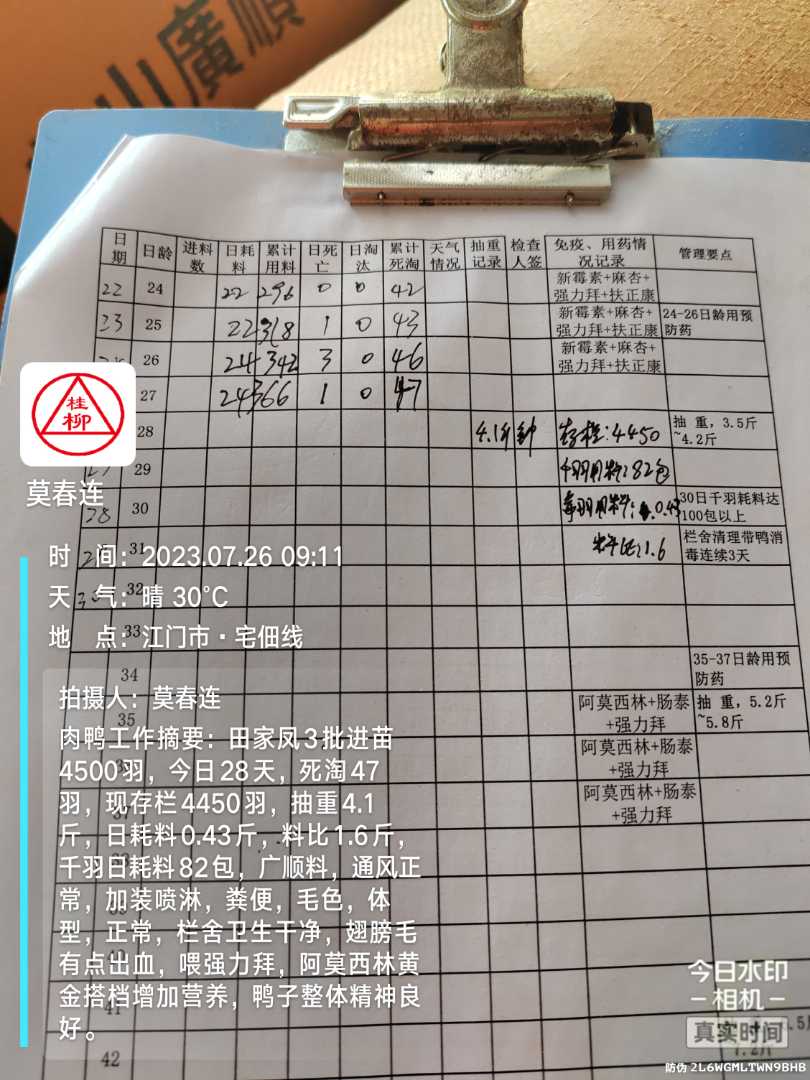 山廣順
日期 日龄 进料数 日耗料 累计用料 日死亡 日淘汰 累计死淘 天气情况 抽重记录 检查人签 免疫、用药情况记录 管理要点
22 24 22 296 0 0 42 新霉素+麻杏+强力拜+扶正康
23 25 22 318 1 0 43 新霉素+麻杏+强力拜+扶正康 24-26日龄用预防药
26 24 342 3 0 46 新霉素+麻杏+强力拜+扶正康
27 24 366 1 0 47
28 4.1斤 存栏:4450 抽重,3.5斤~4.2斤
29 千羽用料:82包
28 30 每羽用料:0.43 30日千羽耗料达100包以上
31 料比:1.6 栏舍清理带鸭消毒连续3天
32
33
34 35-37日龄用预防药
35 阿莫西林+肠泰+强力拜 抽重,5.2斤~5.8斤
阿莫西林+肠泰+强力拜
37 阿莫西林+肠泰+强力拜
41
42
桂柳
莫春连
时 间:2023.07.26 09:11
天 气:晴 30°C
地 点:江门市·宅佃线
拍摄人:莫春连
肉鸭工作摘要:田家凤3批进苗
4500羽,今日28天,死淘47
羽,现存栏4450羽,抽重4.1
斤,日耗料0.43斤,料比1.6斤,
千羽日耗料82包,广顺料,通风正
常,加装喷淋,粪便,毛色,体
型,正常,栏舍卫生干净,翅膀毛
有点出血,喂强力拜,阿莫西林黄
金搭档增加营养,鸭子整体精神良
好。
今日水印
相机
真实时间
防伪 2L6WGMLTWN9BHB